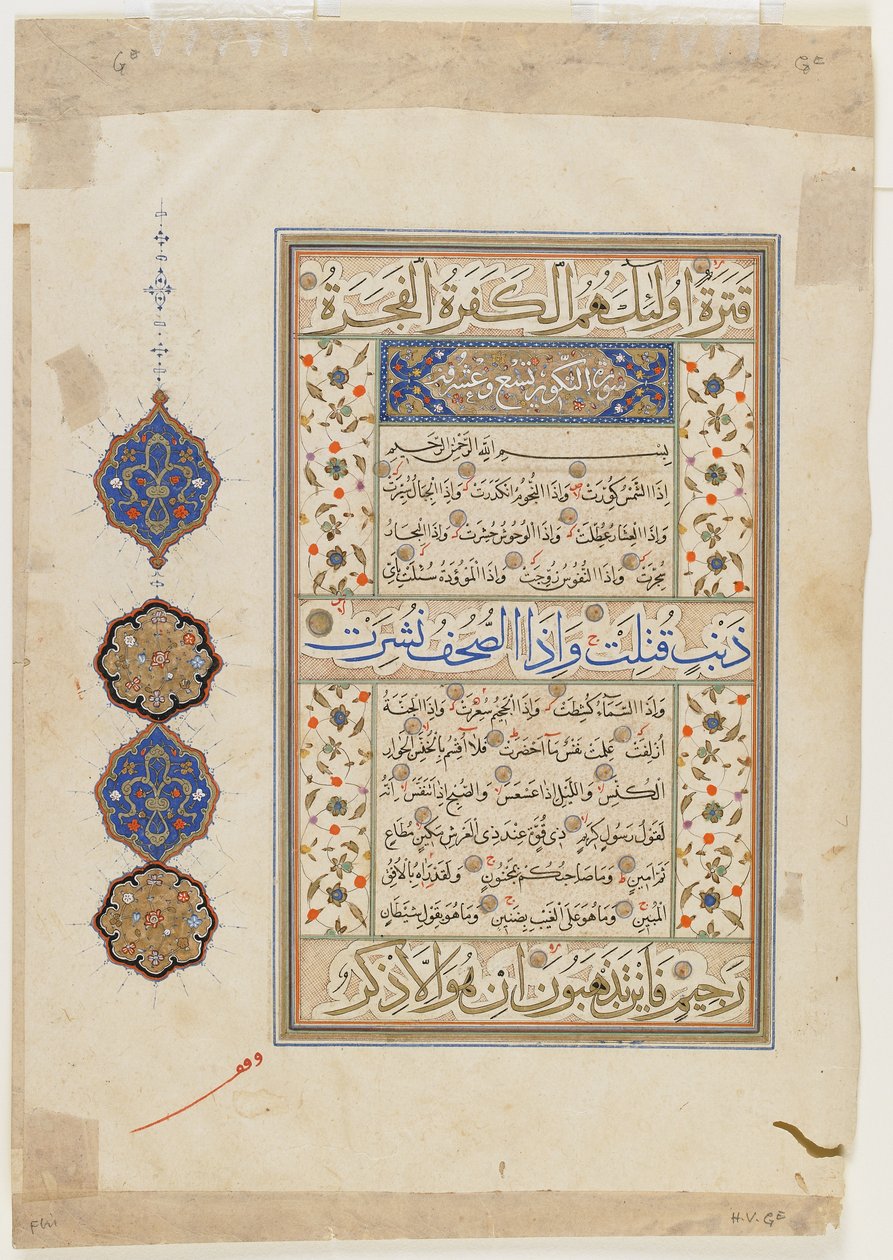 GE GE
قَتَرَةٌ اُولٰئِكَ هُمُ الْكَفَرَةُ الْفَجَرَةُ
سورة التكوير تسع وعشر
بِسْمِ اللهِ الرَّحْمٰنِ الرَّحِيمِ
اِذَا الشَّمْسُ كُوِّرَتْ وَاِذَا النُّجُومُ انْكَدَرَتْ وَاِذَا الْجِبَالُ سُيِّرَتْ
وَاِذَا الْعِشَارُ عُطِّلَتْ وَاِذَا الْوُحُوشُ حُشِرَتْ وَاِذَا الْبِحَارُ
سُجِّرَتْ وَاِذَا النُّفُوسُ زُوِّجَتْ وَاِذَا الْمَوْؤُدَةُ سُئِلَتْ بِاَيِّ
ذَنْبٍ قُتِلَتْ وَاِذَا الصُّحُفُ نُشِرَتْ
وَاِذَا السَّمَآءُ كُشِطَتْ وَاِذَا الْجَحِيمُ سُعِّرَتْ وَاِذَا الْجَنَّةُ
اُزْلِفَتْ عَلِمَتْ نَفْسٌ مَا اَحْضَرَتْ فَلَا اُقْسِمُ بِالْخُنَّسِ الْجَوَارِ
الْكُنَّسِ وَاللَّيْلِ اِذَا عَسْعَسَ وَالصُّبْحِ اِذَا تَنَفَّسَ اِنَّهُ
لَقَوْلُ رَسُولٍ كَرِيمٍ ذِي قُوَّةٍ عِنْدَ ذِي الْعَرْشِ مَكِينٍ مُطَاعٍ
ثَمَّ اَمِينٍ وَمَا صَاحِبُكُمْ بِمَجْنُونٍ وَلَقَدْ رَاٰهُ بِالْاُفُقِ
الْمُبِينِ وَمَا هُوَ عَلَى الْغَيْبِ بِضَنِينٍ وَمَا هُوَ بِقَوْلِ شَيْطَانٍ
رَجِيمٍ فَاَيْنَ تَذْهَبُونَ اِنْ هُوَ اِلَّا ذِكْرٌ
وقف
H.V. GE